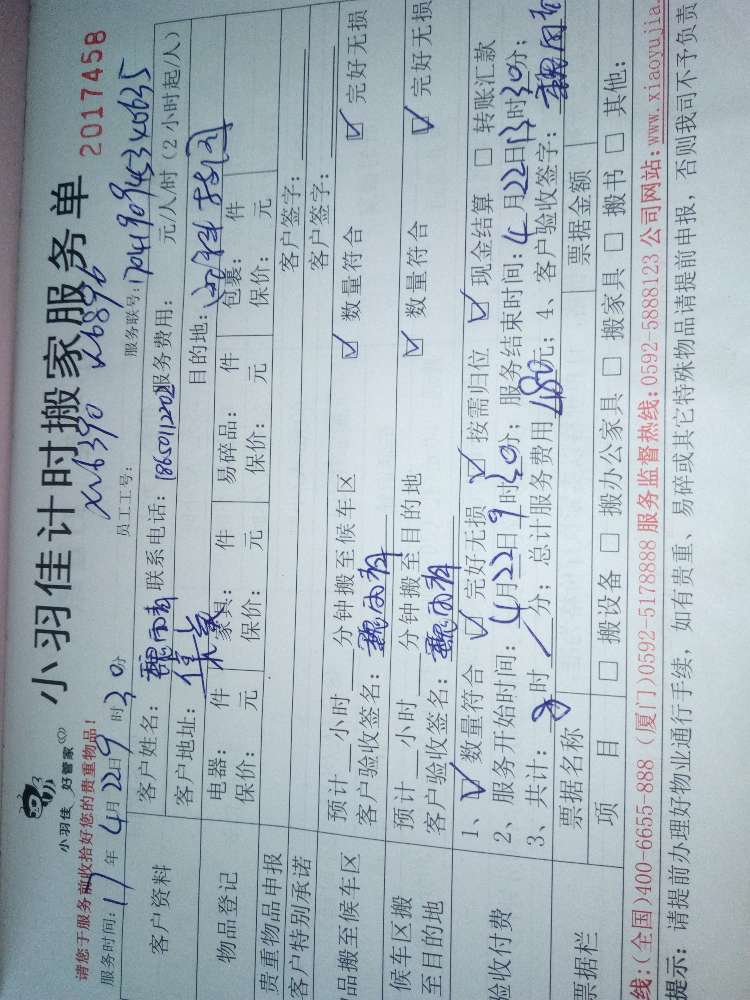 小羽佳 好管家
小羽佳计时搬家服务单
2017458
请您于服务前收拾好您的贵重物品！
服务时间：17年4月22日9时30分
员工工号：
x16390 x16896
服务联号：
客户资料
客户姓名： 联系电话：18650112202 服务费用： 元/人/时（2小时起/人）
客户地址：集美 目的地：
物品登记
电器： 件 家具： 件 易碎品： 件 包裹： 件
保价： 元 保价： 元 保价： 元 保价： 元
贵重物品申报 客户签字：
客户特别承诺 客户签字：
品搬至候车区
预计 小时 分钟搬至候车区 ☑ 数量符合 ☑ 完好无损
客户验收签名：
候车区搬至目的地
预计 小时 分钟搬至目的地 ☑ 数量符合 ☑ 完好无损
客户验收签名：
验收付费
1、☑ 数量符合 ☑ 完好无损 ☑ 按需归位 ☑ 现金结算 □ 转账汇款
2、服务开始时间：4月22日9时30分；服务结束时间：4月22日13时30分；
3、共计： 时 分；总计服务费用480元；4、客户验收签字：
票据栏
票据名称 票据金额
项目 □ 搬设备 □ 搬办公家具 □ 搬家具 □ 搬书 □ 其他：
线：(全国)400-6655-888 (厦门)0592-5178888 服务监督热线：0592-5888123 公司网站：www.xiaoyujia.
提示：请提前办理好物业通行手续，如有贵重、易碎或其它特殊物品请提前申报，否则我司不予负责